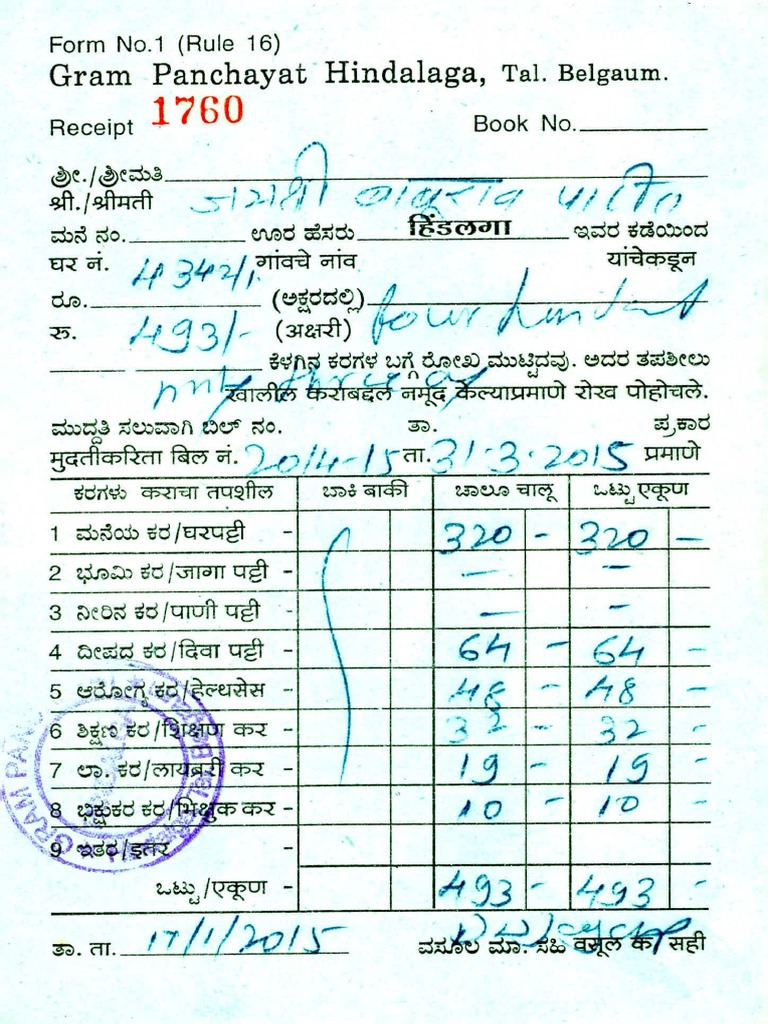 Form No.1 (Rule 16)
Gram Panchayat Hindalaga, Tal. Belgaum.
Receipt 1760 Book No.
ಶ್ರೀ./ಶ್ರೀಮತಿ
श्री./श्रीमती जयश्री बाबूराव पाटील
ಮನೆ ನಂ. ಊರ ಹೆಸರು हिंडलगा ಇವರ ಕಡೆಯಿಂದ
घर नं. 4342/1 गांवचे नांव यांचेकडून
ರೂ. (ಅಕ್ಷರದಲ್ಲಿ)
रु. 493/- (अक्षरी) four hundred
ಕೆಳಗಿನ ಕರಗಳ ಬಗ್ಗೆ ರೋಖ ಮುಟ್ಟಿದವು. ಅದರ ತಪಶೀಲು
खालील करांबद्दल नमूद केल्याप्रमाणे रोख पोहोचले.
ಮುದ್ದತಿ ಸಲುವಾಗಿ ಬಿಲ್ ನಂ. ತಾ. ಪ್ರಕಾರ
मुदतीकरिता बिल नं. 2014-15 ता. 31.3.2015 प्रमाणे
ಕರಗಳು कराचा तपशील ಬಾಕಿ बाकी ಚಾಲೂ चालू ಒಟ್ಟು एकूण
1 ಮನೆಯ ಕರ/घरपट्टी - 320 - 320 -
2 ಭೂಮಿ ಕರ/जागा पट्टी - - -
3 ನೀರಿನ ಕರ/पाणी पट्टी - - -
4 ದೀಪದ ಕರ/दिवा पट्टी - 64 - 64 -
5 ಆರೋಗ್ಯ ಕರ/हेल्थसेस - 48 - 48 -
6 ಶಿಕ್ಷಣ ಕರ/शिक्षण कर - 32 - 32 -
7 ಲಾ. ಕರ/लायब्ररी कर - 19 - 19 -
8 ಭಿಕ್ಷುಕರ ಕರ/भिक्षुक कर - 10 - 10 -
9 ಇತರ/इतर -
ಒಟ್ಟು/एकूण - 493 - 493 -
ತಾ. ता. 17/1/2015 ವಸೂಲ ಮಾ. ಸಹಿ वसूल क. सही
GRAM PAN